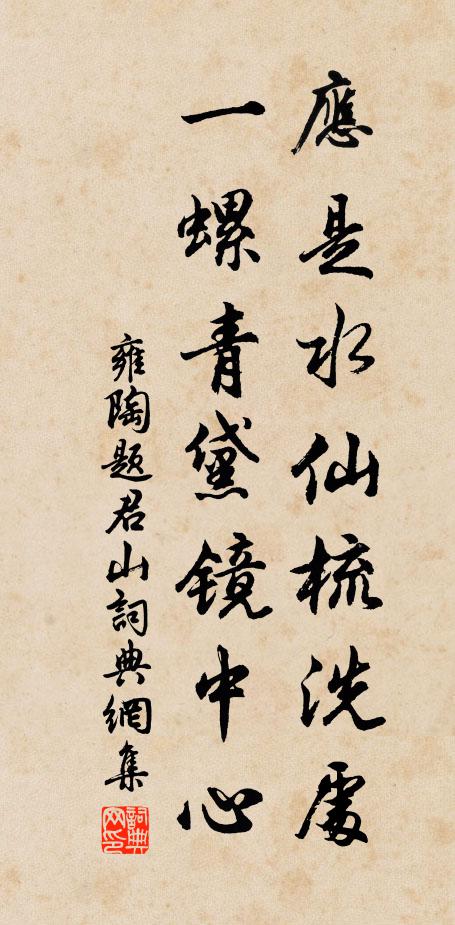 應是水仙梳洗處
一螺青黛镜中心
雍陶題君山詞典網集
詞典网印